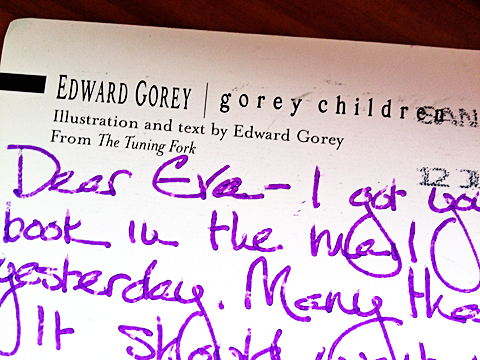 EDWARD GOREY | gorey children
SAN
Illustration and text by Edward Gorey
From The Tuning Fork
12 J
Dear Eva- I got yo
book in the mail
yesterday. Many tha
It should